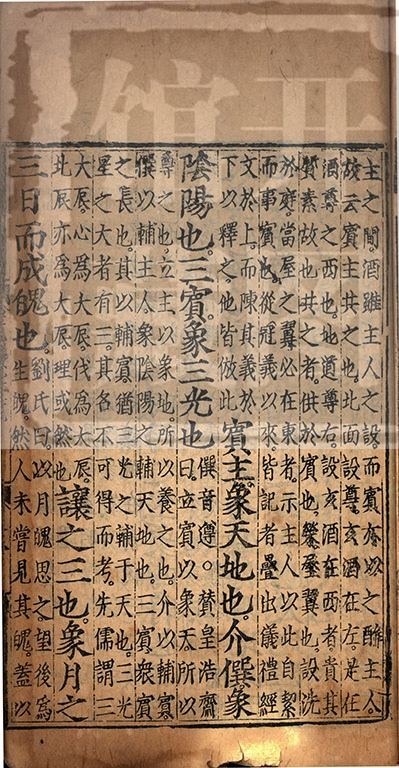 主之間。酒雖主人之設而賓亦以之酢主人。
故云賓主共之也。北面設尊。玄酒在左。是在
酒尊之西也。地道尊右。設玄酒在西者。貴其
質素故也。共之者。供於賓也。榮屋翼也。設洗
於庭。當屋之翼必在東者。示主人以此自絜
而事賓也。從冠義以來。皆記者疊出儀禮經
文於上。而陳其義於
下以釋之。他皆倣此
賓主象天地也。介僎象
陰陽也。三賓象三光也
僎音尊。○贊皇浩齋
曰。立賓以象天。所以
尊之也。立主以象地。所以養之也。介以輔賓
僎以輔主人。象陰陽之輔天地也。三賓衆賓
之長也。其以輔賓。猶三光之輔于天也。三光
星之大者有三。其各不可得而考。先儒謂三
大辰。心為大辰。伐為大辰。
北辰亦為大辰。理或然也
讓之三也。象月之
三日而成魄也。
劉氏曰。以月魄思之。望後為
生魄。然人未嘗見其魄。蓋以